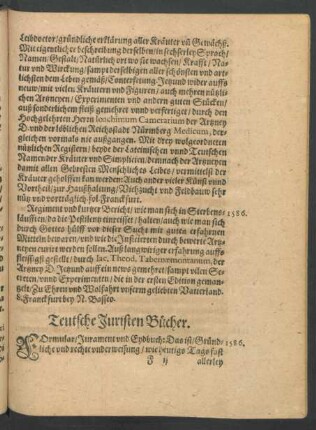 Leibdoctor/gründliche erklärung aller Kräuter vñ Gewächß.
Mit eigentlicher beschreibung derselben/in sechserley Sprach/
Namen/Gestalt/Natürlich ort wo sie wachsen/Krafft/Na-
tur vnd Wirckung/sampt derselbigen aller schönsten vnd art-
lichsten dem Leben gemäß/Conterfeyung/Jetzund wider auffs
neuw/mit vielen Kräutern vnd Figuren/auch mehren nützli-
chen Artzneyen/Experimenten vnd andern guten Stücken/
auß sonderlichem fleiß gemehret vnd verfertiget/durch den
Hochgelehrten Herrn Ioachimum Camerarium der Artzney
D. vnd der löblichen Reichsstadt Nürmberg Medicum, der-
gleichen vormals nie außgangen. Mit drey wolgeordneten
nützlichen Registern/beyde der Lateinischen vnd Teutschen
Namen der Kräuter vnd Simplicien/demnach der Artzneyen
damit allen Gebresten Menschliches Leibes/vermittelst der
Kräuter geholffen kan werden: Auch ander vieler Künst vnnd
Vortheil/zur Haußhaltung/Viehzucht vnd Feldbauw sehr
nütz vnd vorträglich. fol Franckfurt.
Regiment vnd kurtzer Bericht/wie man sich in Sterbens- 1586.
läufften/da die Pestilentz einreisset/halten/auch wie man sich
durch Gottes hülff vor dieser Sucht mit guten erfahrnen
Mitteln bewaren/vnd wie die Inficierten durch bewerte Ar-
tzneyen curirt werden sollen. Auß langwiriger erfahrung auffs
fleissigst gestellt/durch Iac. Theod. Tabernæmontanum, der
Artzney D. Jetzund auff ein news gemehret/sampt vilen Se-
creten/vnnd Experimenten/die in der ersten Edition gemang-
let. Zu Ehrn vnd Wolfahrt vnserm geliebten Vatterland.
8. Franckfurt bey N. Basseo.
Teutsche Juristen Bücher.
FOrmular/Jurament vnd Eydbuch: Das ist/Gründ- 1586.
liche vnd rechte vnderweisung/wie heutigs Tags fast
allerley